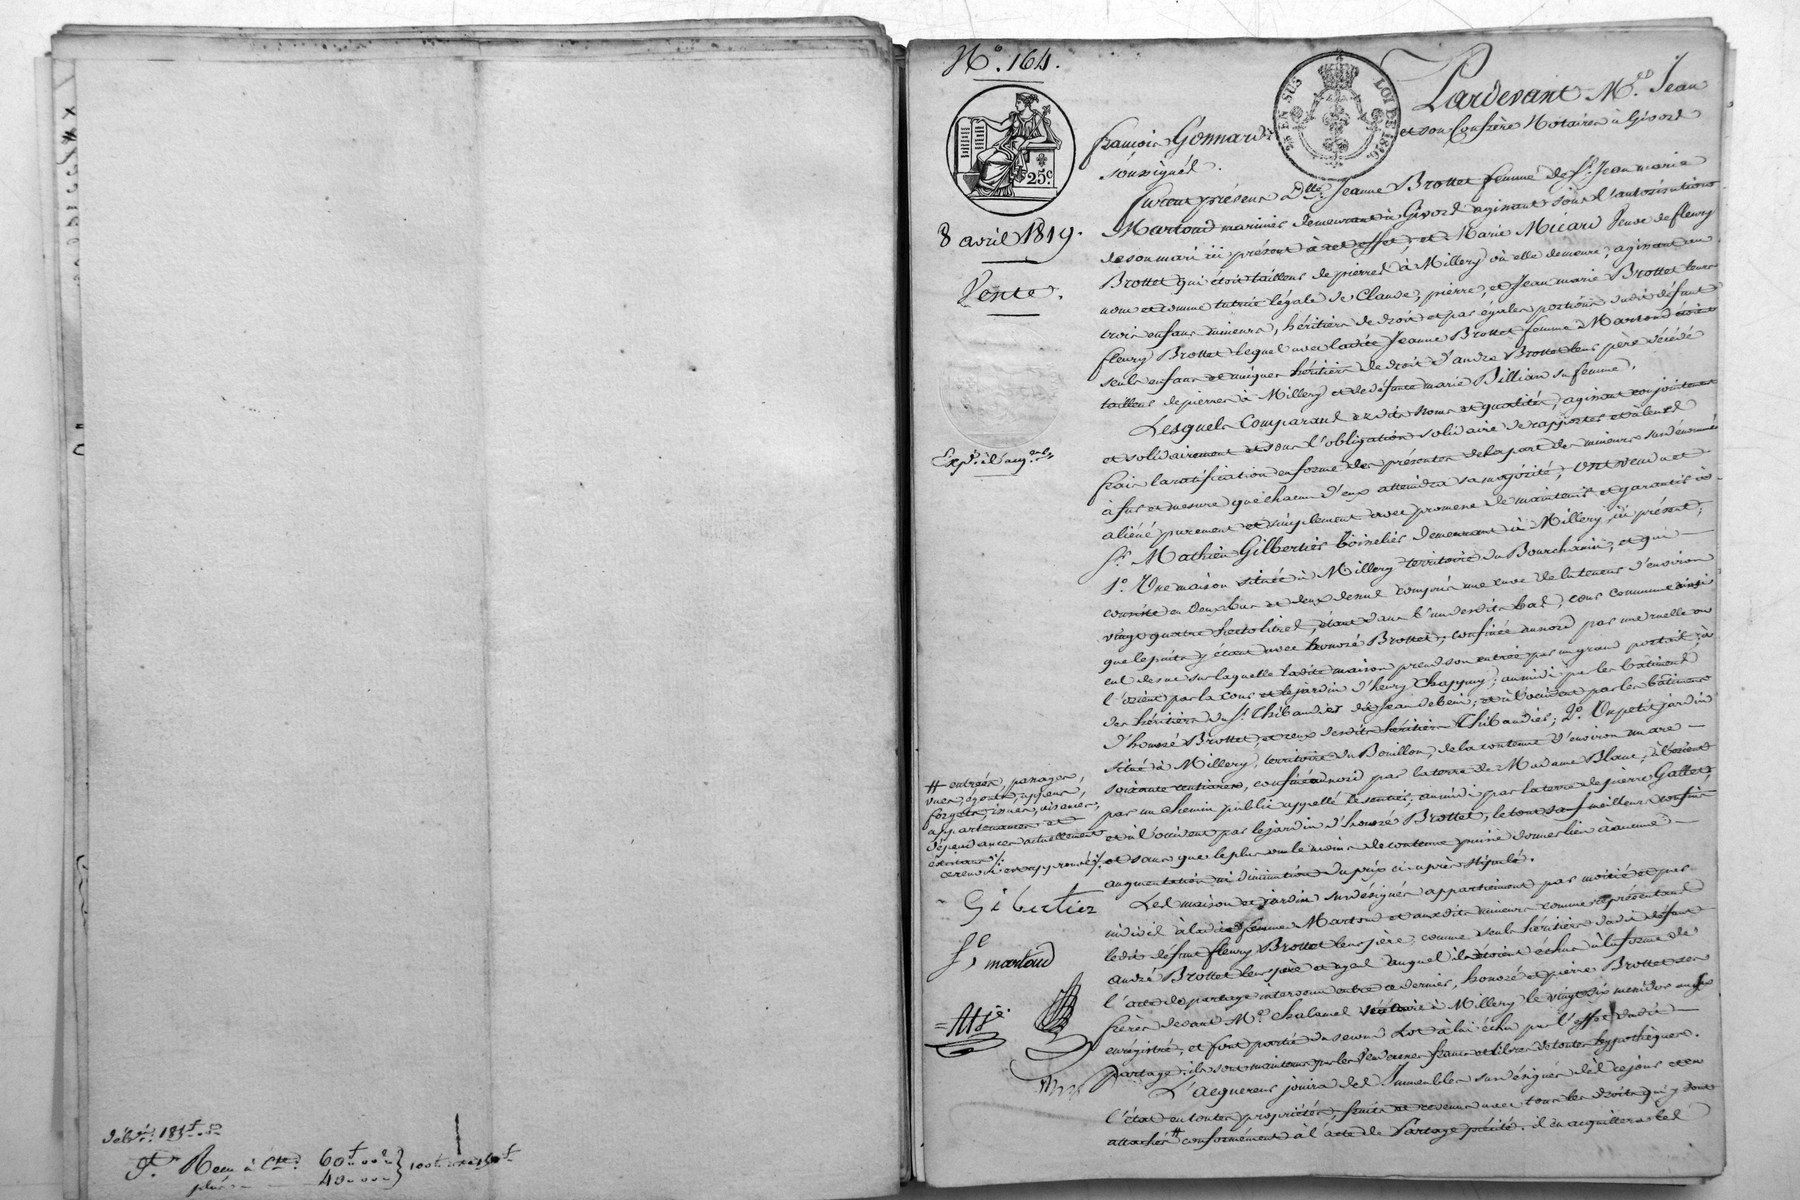 N.° 164.
25 EN SUS
LOI DE 1816.
25c.
8 avril 1819.
Vente.
Pardevant M.es Jean
françois Gonnard et son Confrère Notaires à Givors
soussignés.
furent présens D.lle Jeanne Brottet femme de S.r Jean marie
Martoud marinier demeurant à Givors agissant sous l'autorisation
de son mari ici présent à cet effet, et Marie Micard Veuve de fleury
Brottet qui étoit tailleur de pierres à Millery où elle demeure, agissant au
nom et comme tutrice légale de Claude, pierre, et Jean marie Brottet leurs
trois enfans mineurs, héritiers de droit et par égales portions dudit défunt
fleury Brottet lequel avec ladite Jeanne Brottet femme Martoud étoit
seuls enfans et uniques héritiers de droit d'andré Brottet leur père décédé
tailleur de pierres à Millery et de défunte marie Billiard sa femme.
Lesquels Comparans esdits noms et qualités, agissant conjointement
et solidairement et sous l'obligation solidaire de rapporter et à leurs
frais la ratification en forme des présentes de la part des mineurs susdénommés
à fur et mesure que chacun d'eux atteindra sa majorité, Ont vendu et
aliéné purement et simplement avec promesse de maintenir et garantir à
S.r Mathieu Gilbertier demeurant à Millery, ici présent;
1.° Une maison située à Millery territoire du Bourchanin, et qui
consiste en deux bas et deux dessus compris une cuve de la teneur d'environ
vingt quatre hectolitres, étant dans l'un desdits bas, cour commune ainsi
que le puits y étant avec honoré Brottet; confinée au nord par une ruelle ou
cul de sac sur laquelle ladite maison prend son entrée par un grand portail; à
l'orient par la cour et le jardin d'henry Chappuy; au midi par les bâtimens
des héritiers du S.r Thibaudier et à l'occident par les bâtimens
d'honoré Brottet, et ceux desdits héritiers Thibaudier; 2.° Un petit jardin
situé à Millery, territoire du Bouillon, de la contenue d'environ un are
soixante centiares, confiné au nord par la terre de Madame Blanc, à l'orient
par un chemin public appellé le sentier, au midi par la terre de pierre Gallet,
et à l'occident par le jardin d'honoré Brottet, le tout sauf meilleurs confins
et sans que le plus ou le moins de contenue puisse donner lieu à aucune
augmentation ni diminution du prix ci-après stipulé.
Les maison et jardin susdésignés appartiennent par moitié et par
indivis à ladite femme Martoud et auxdits mineurs comme représentant
ledit défunt fleury Brottet leur père, comme seuls héritiers dudit défunt
andré Brottet leur père et ayeul auquel ils étoient échus à la forme de
l'acte de partage intervenu entre ce dernier, honoré et pierre Brottet ses
frères devant M.e Chalamel Notaire à Millery le vingt six messidor an
enregistré, et font partie du second Lot à lui échu par l'effet dudit
partage; ils sont maintenus par les Vendeurs francs et libres de toutes hypothèques.
L'acquéreur jouira des Immeubles susdésignés dès ce jour et en
l'état en toutes propriétés, fruits et revenus avec tous les droits qui y sont
attachés # conformément à l'acte de Partage précité. il en acquittera les
# entrées, passages,
vues, égouts,
forgets, issues, aisances,
appartenances et
dépendances actuellement
ce renvoi est approuvé ./.
Gilbertier
martoud
P.r Reçu à C.te 60
plus 40